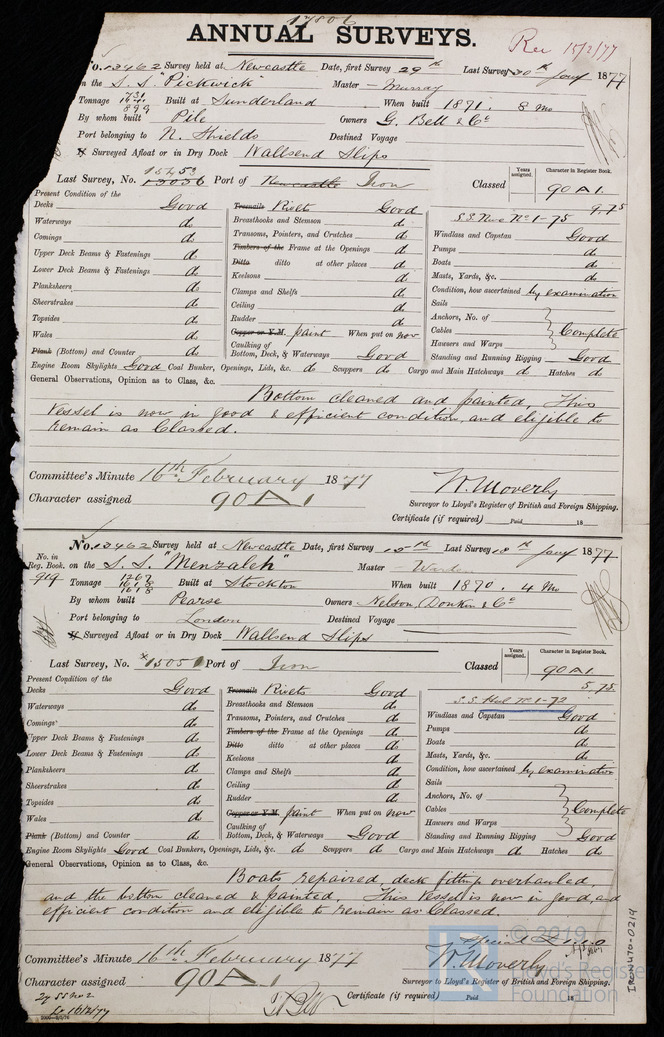 17806
ANNUAL SURVEYS.
Rec 15/2/77
No. 13462 Survey held at Newcastle Date, first Survey 29th Last Survey 30th Jany 1877
on the S.S. "Pickwick" Master Murray
Tonnage 731 899 Built at Sunderland When built 1871. 8 Mo
By whom built Pile Owners G. Bell & Co
Port belonging to N. Shields Destined Voyage
Surveyed Afloat or in Dry Dock Wallsend Slips
Last Survey, No. 13056 Port of Newcastle Iron Classed
Years assigned.
Character in Register Book.
90 A 1.
9.75
S.S. Nwc No 1-75
Present Condition of the
Decks Good
Waterways do
Comings do
Upper Deck Beams & Fastenings do
Lower Deck Beams & Fastenings do
Planksheers do
Sheerstrakes do
Topsides do
Wales do
Plank (Bottom) and Counter do
Treenails Rivets Good
Breasthooks and Stemson do
Transoms, Pointers, and Crutches do
Timbers of the Frame at the Openings do
Ditto ditto at other places do
Keelsons do
Clamps and Shelfs do
Ceiling do
Rudder do
Copper or Y.M. paint When put on now
Caulking of
Bottom, Deck, & Waterways Good
Windlass and Capstan Good
Pumps do
Boats do
Masts, Yards, &c. do
Condition, how ascertained by examination
Sails
Anchors, No. of
Cables Complete
Hawsers and Warps
Standing and Running Rigging Good
Engine Room Skylights Good Coal Bunker, Openings, Lids, &c. do Scuppers do Cargo and Main Hatchways do Hatches do
General Observations, Opinion as to Class, &c.
Bottom cleaned and painted, This
Vessel is now in good & efficient condition, and eligible to
remain as Classed.
Committee's Minute 16th February 1877
Character assigned 90 A 1
W. Moverly
Surveyor to Lloyd's Register of British and Foreign Shipping.
Certificate (if required) Paid 18
No. 13462 Survey held at Newcastle Date, first Survey Last Survey 18th Jany 1877
No. in Reg. Book.
919
on the S.S. "Menzaleh" Master Warden
Tonnage 1267 1618 1618 Built at Stockton When built 1870. 4 Mo
By whom built Pearse Owners Nelson, Donkin & Co
Port belonging to London Destined Voyage
Surveyed Afloat or in Dry Dock Wallsend Slips
Last Survey, No. Port of Iron Classed
Years assigned.
Character in Register Book.
90 A 1.
5.75
S.S. Hul No 1-72
Present Condition of the
Decks Good
Waterways do
Comings do
Upper Deck Beams & Fastenings do
Lower Deck Beams & Fastenings do
Planksheers do
Sheerstrakes do
Topsides do
Wales do
Plank (Bottom) and Counter do
Treenails Rivets Good
Breasthooks and Stemson do
Transoms, Pointers, and Crutches do
Timbers of the Frame at the Openings do
Ditto ditto at other places do
Keelsons do
Clamps and Shelfs do
Ceiling do
Rudder do
Copper or Y.M. paint When put on now
Caulking of
Bottom, Deck, & Waterways Good
Windlass and Capstan Good
Pumps do
Boats do
Masts, Yards, &c. do
Condition, how ascertained by examination
Sails
Anchors, No. of
Cables Complete
Hawsers and Warps
Standing and Running Rigging Good
Engine Room Skylights Good Coal Bunkers, Openings, Lids, &c. do Scuppers do Cargo and Main Hatchways do Hatches do
General Observations, Opinion as to Class, &c.
Boats repaired, deck fittings overhauled,
and the bottom cleaned & painted, This Vessel is now in good, and
efficient condition and eligible to remain as Classed.
Special £1.1.0
Committee's Minute 16th February 1877
Character assigned 90 A 1
W. Moverly
Surveyor to Lloyd's Register of British and Foreign Shipping.
Certificate (if required) Paid 18
16/2/77
© 2019
Lloyd's Register
Foundation
IRON470-0214